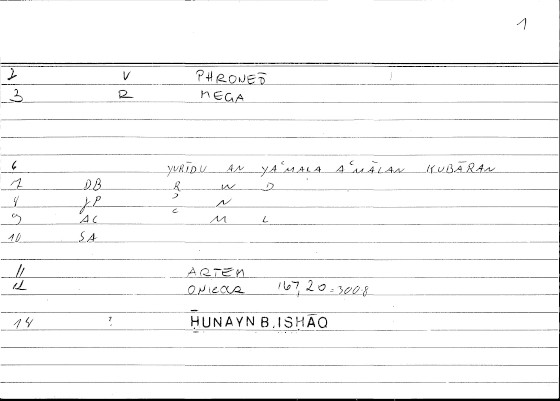 1
2 V PHRONEŌ
3 R MEGA
6 YURĪDU AN YAʿMALA AʿMĀLAN KUBĀRAN
7 DB R W D
8 JP ʾ N
9 AC ʿ M L
10 SA
11 ARTEM
12 ONIROR 167,20 = 3008
14 : ḤUNAYN B. ISḤĀQ